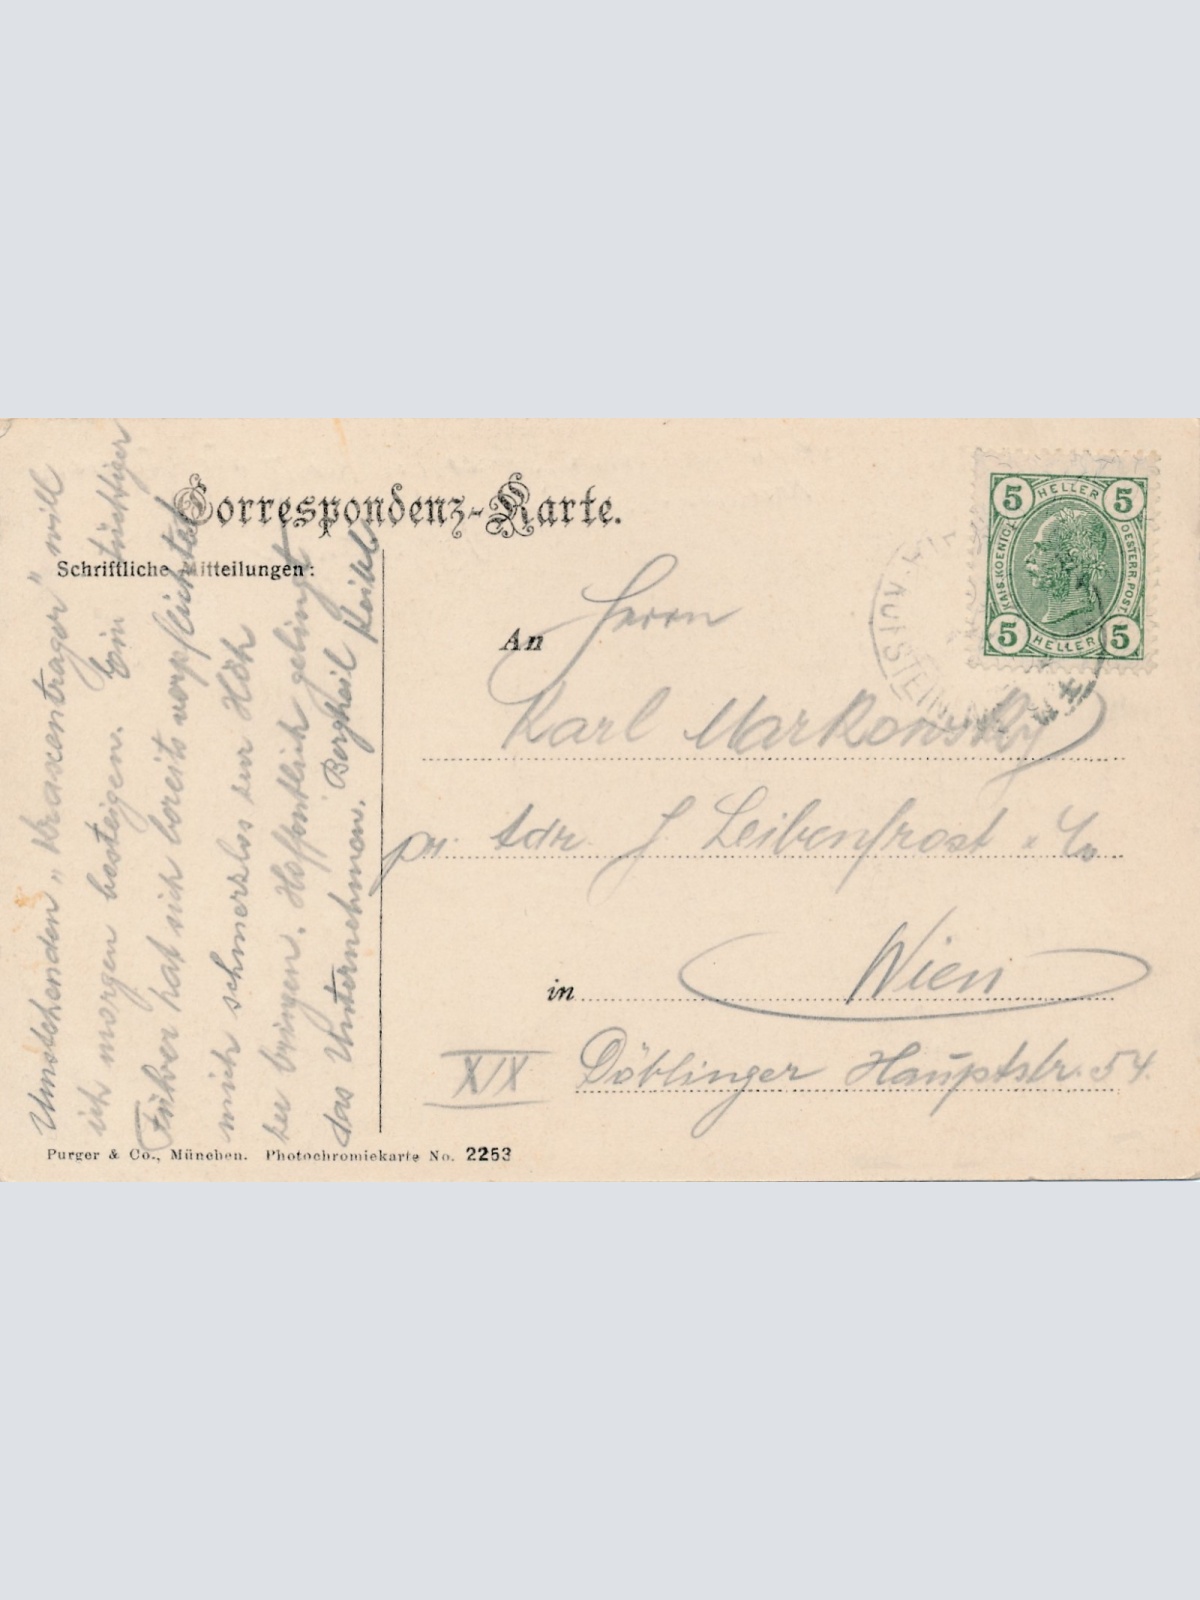 Correspondenz-Karte.
Schriftliche Mitteilungen:
Umstehenden „Kraxentrager" will
ich morgen besteigen. Ein tüchtiger
Führer hat sich bereits verpflichtet
mich schmerzlos zur Höh
he bringen. Hoffentlich gelingt
das Unternehmen. Bergheil
An Herrn
Karl Markowsky
pr. Adr. J. Leibenfrost & Co
in Wien
XIX Döblinger Hauptstr. 54.
5 HELLER 5
KAIS. KOENIGL. OESTERR. POST.
5 HELLER 5
KUFSTEIN
Purger & Co., München. Photochromiekarte No. 2253